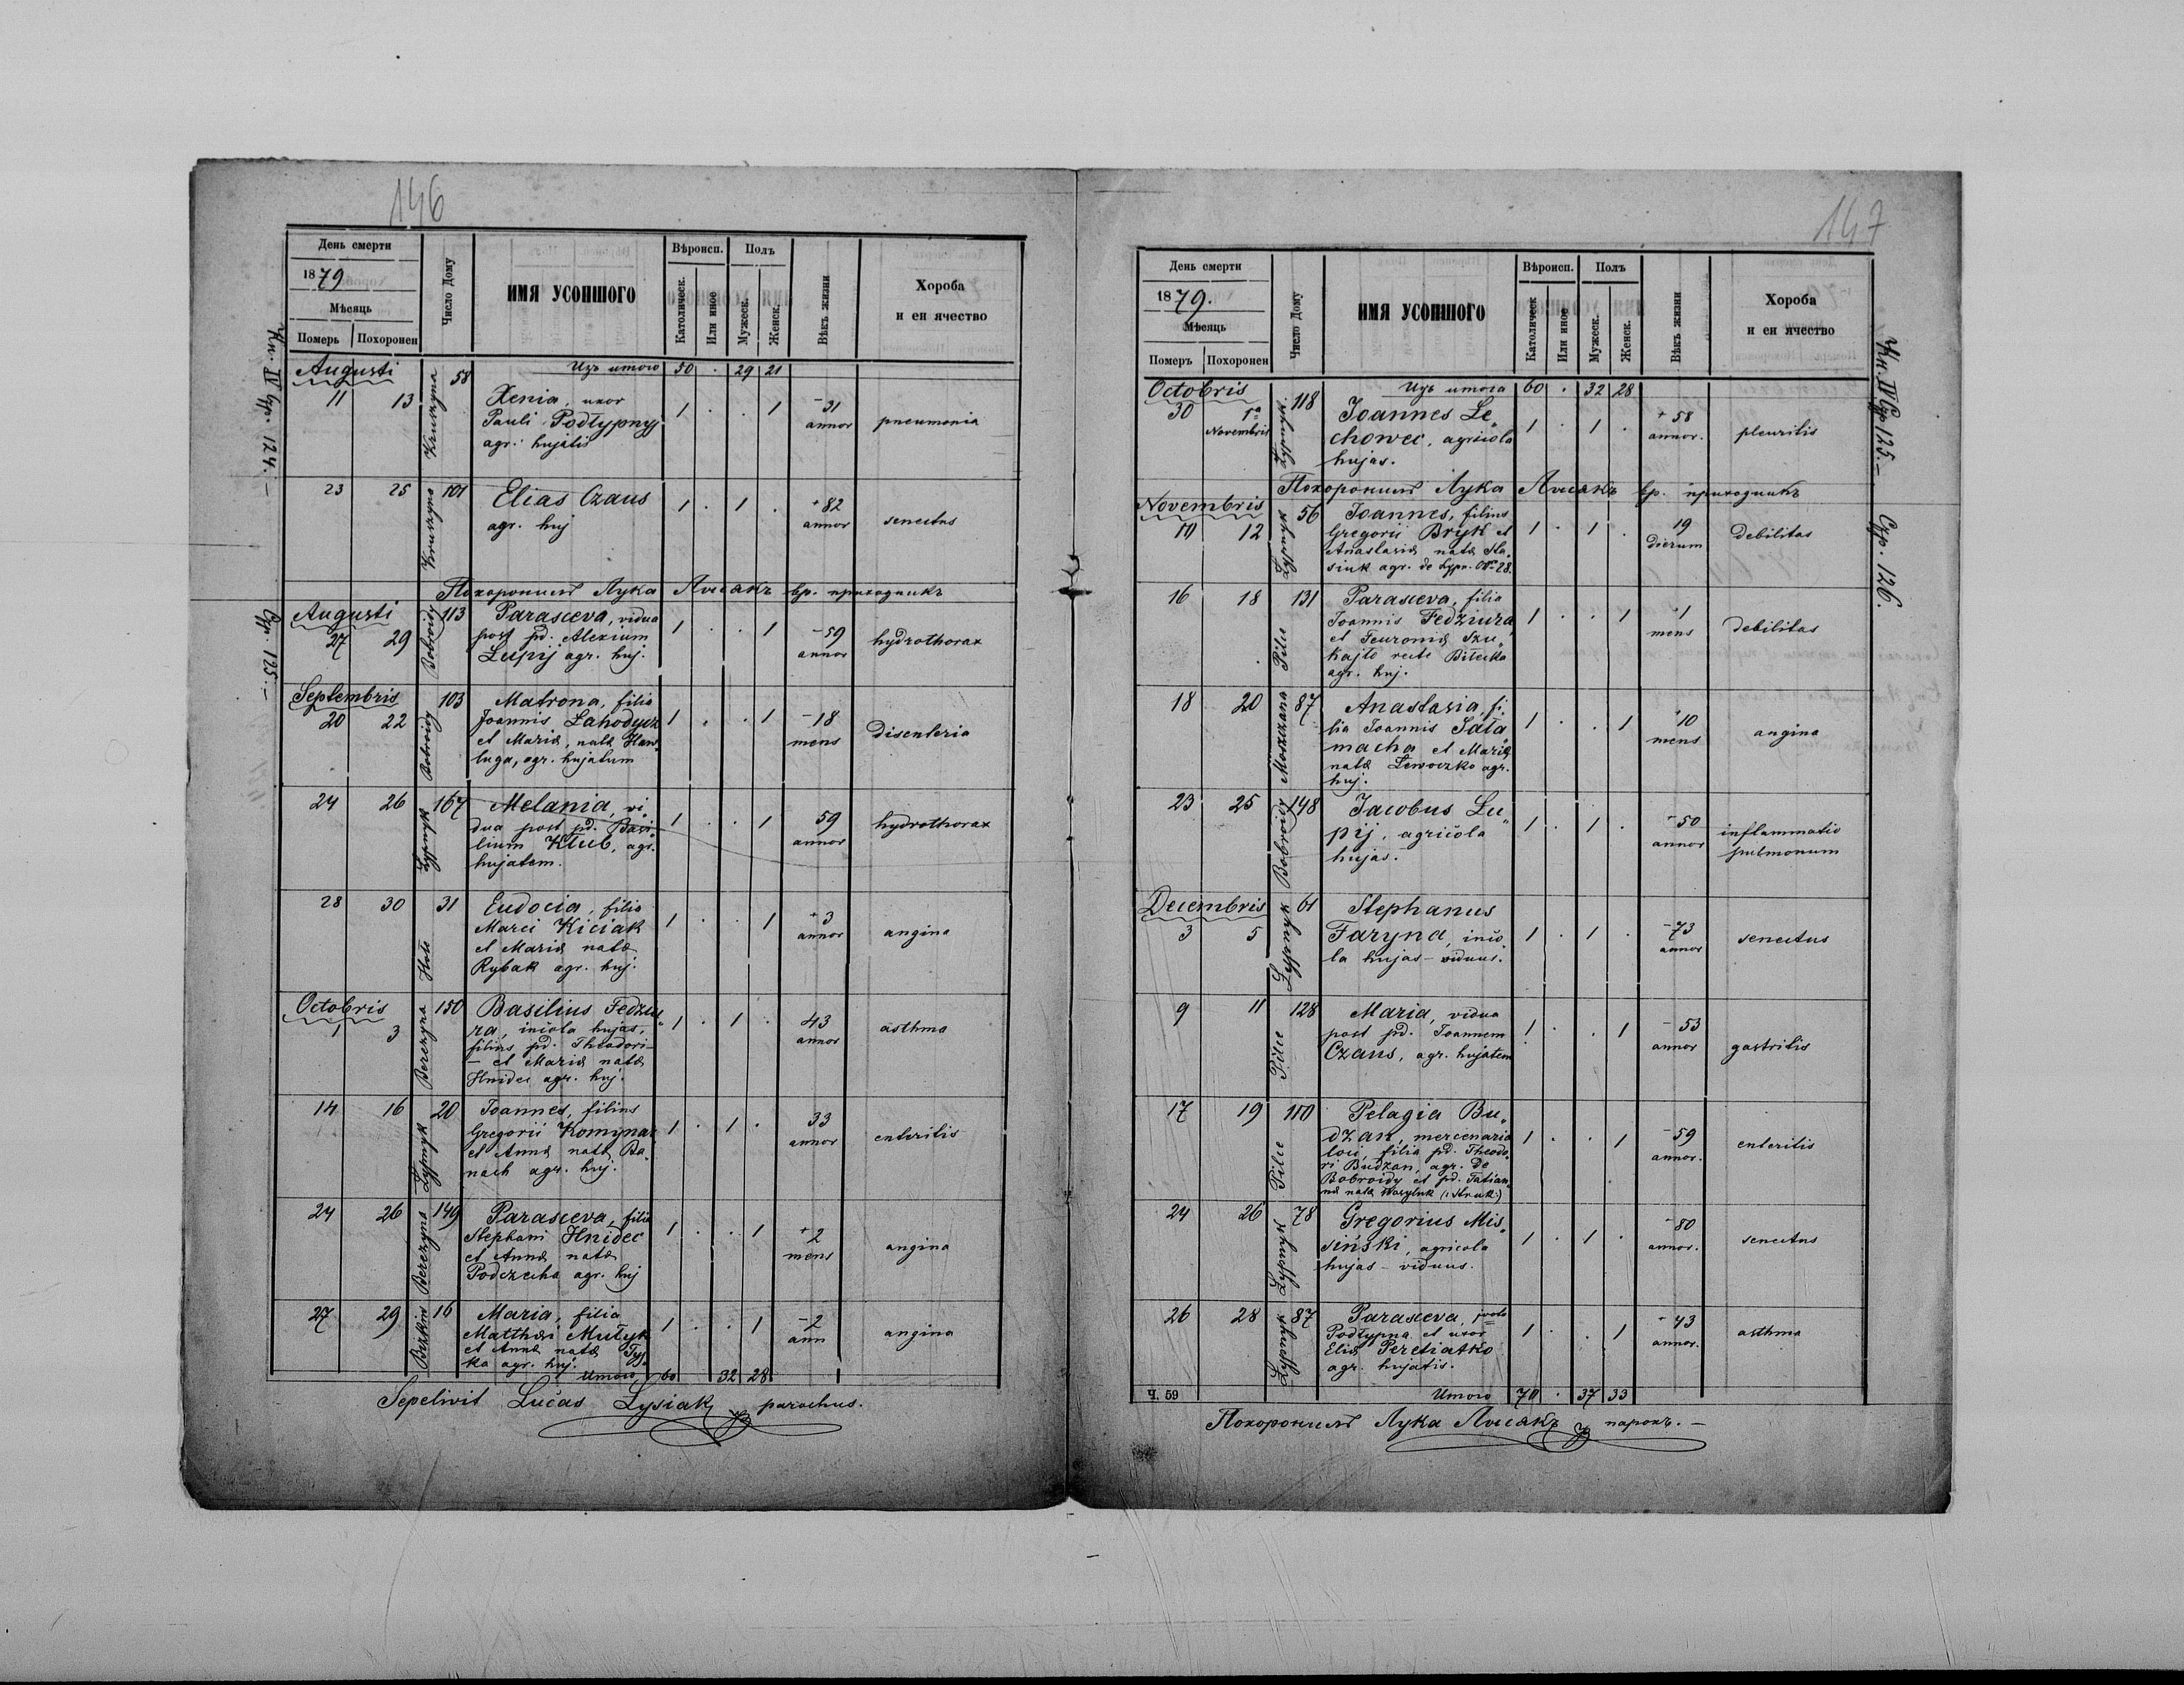 146
День смерти
1879
Мѣсяць
Померъ Похоронен
Число Дому
ИМЯ УСОПШОГО
Вѣроисп.
Католическ.
Или иное
Полъ
Мужеск.
Женск.
Вѣкъ жизни
Хороба
и еи ячество
Кн. IV Стр. 124.–
Стр. 125.–
Augusti 58 50 . 29 21
11 13 Kruszyna Xenia, uxor 1 . . 1 31 annor pneumonia
Pauli Podłypnyj
agr. hujatis
23 25 Kruszyna 101 Elias Czaus 1 . 1 . 82 annor senectus
agr. huj
Похоронилъ Лука Лисякъ гр. приходникъ
Augusti 113 Parasceva, vidua
27 29 Bobroidy post pd. Alexium 1 . . 1 59 annor hydrothorax
Lupij agr. huj.
Septembris 103 Matrona, filia
20 22 Bobroidy Joannis Lahodycz 1 . . 1 18 mens Disenteria
et Mariæ, natæ
luga, agr. hujatum
24 26 Lypnyk 167 Melania, vi„
dua post pd. Basi„ 1 . . 1 59 annor hydrothorax
lium Kłub, agr.
hujatem.
28 30 31 Eudocia, filia
Marci Kiciak 1 . . 1 3 annor angina
et Mariæ natæ
Rybak agr. huj.
Octobris 150 Basilius Fedziu„
1 3 Berezyna ra, incola hujas, 1 . 1 . 43 annor asthma
filius pd. Theodori –
– et Mariæ natæ
Hnidec agr. huj.
14 16 Lypnyk 20 Joannes, filius
Gregorii Komynar 1 . 1 . 33 annor enteritis
et Annæ natæ Ba„
nach agr. huj.
24 26 Berezyna 149 Parasceva, filia
Stephani Hnidec 1 . . 1 2 mens angina
et Annæ natæ
Podczecha agr. huj
27 29 16 Maria, filia
Matthæi Mułyk 1 . . 1 2 ann angina
et Annæ natæ Tys„
ka agr. huj.
Итого 60 32 28
Sepelivit Lucas Lysiak parochus.
147
День смерти
1879.
Мѣсяць
Померъ Похоронен
Число Дому
ИМЯ УСОПШОГО
Вѣроисп.
Католическ
Или иное
Полъ
Мужеск.
Женск.
Вѣкъ жизни
Хороба
и еи ячество
Кн. IV Стр 125.– Стр. 126.
Octobris 118 60 . 32 28
30 1ª Novembris Lypnyk Joannes Le„
chowec, agricola 1 . 1 . 58 annor. pleuritis
hujas.
Похоронилъ Лука Лисякъ гр. приходникъ
Novembris 56 Joannes, filius
10 12 Lypnyk Gregorii Bryk et 1 . 1 . 19 dierum debilitas
Anastasiæ natæ Sta„
siuk agr. de Lypn. Nro 28.
16 18 Pilce 131 Parasceva, filia
Joannis Fedziura, 1 . . 1 1 mens debilitas
et Feuroniæ Szu„
kajło recte Biłecka
agr. huj.
18 20 Moszczana 87 Anastasia, fi„
lia Joannis Sała„ 1 . . 1 10 mens angina
macha et Mariæ
natæ Lewoczko agr.
huj.
23 25 Bobroidy 148 Jacobus Lu„
pij, agricola 1 . 1 . 50 annor inflammatio
hujas. pulmonum
Decembris 61 Stephanus
3 5 Lypnyk Faryna, inco„ 1 . 1 . 73 annor senectus
la hujas – viduus.
9 11 Pilce 128 Maria, vidua
post pd. Joannem 1 . . 1 53 annor gastritis
Czaus, agr. hujatem
17 19 Pilce 110 Pelagia Bu„
dzan, mercenaria 1 . . 1 59 annor. enteritis
loci, filia pd. Theodo„
ri Budzan, agr. de
Bobroidy et pd. Tatian„
næ natæ Wasyluk (:Struk:)
24 26 Lypnyk 78 Gregorius Mis„
siński, agricola 1 . 1 . 80 annor. senectus
hujas – viduus.
26 28 Lypnyk 87 Parasceva, 1voto
Podłypna et uxor 1 . . 1 43 annor. asthma
Eliæ Peretiatko
agr. hujatis.
Ч. 59 Итого 70 . 37 33
Похоронилъ Лука Лисякъ парохъ. –